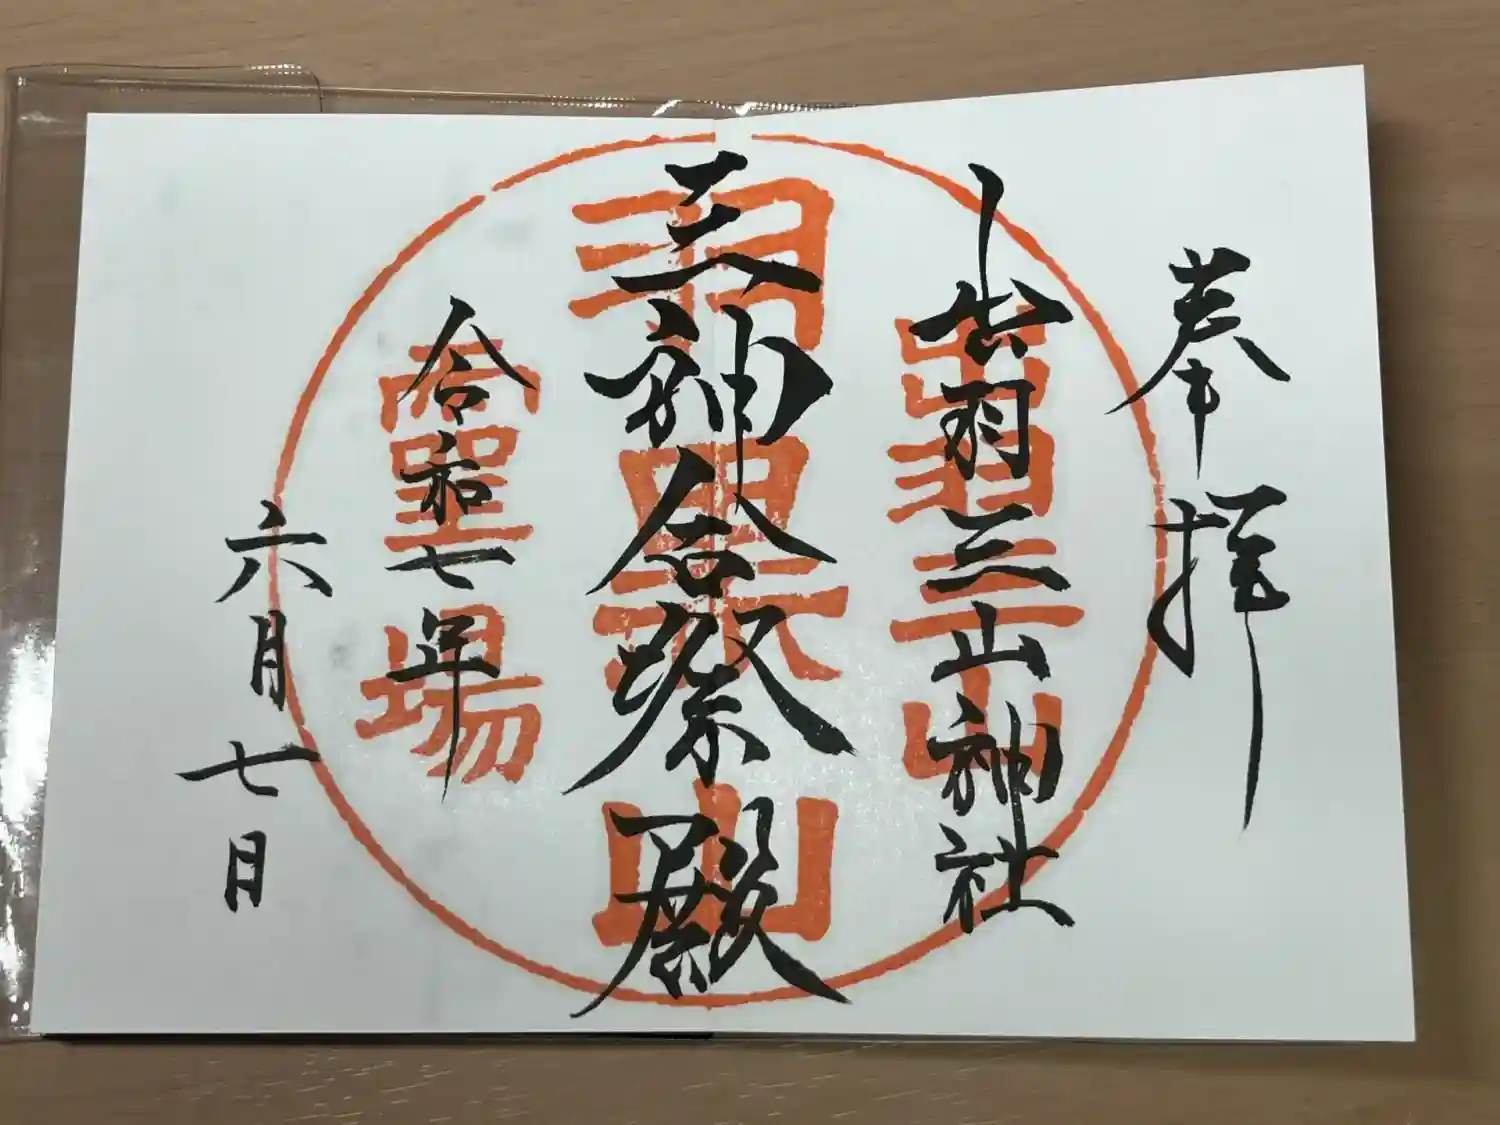 奉拝
出羽三山神社
出羽三山
三神合祭殿
羽黒山
令和七年
霊場
六月七日